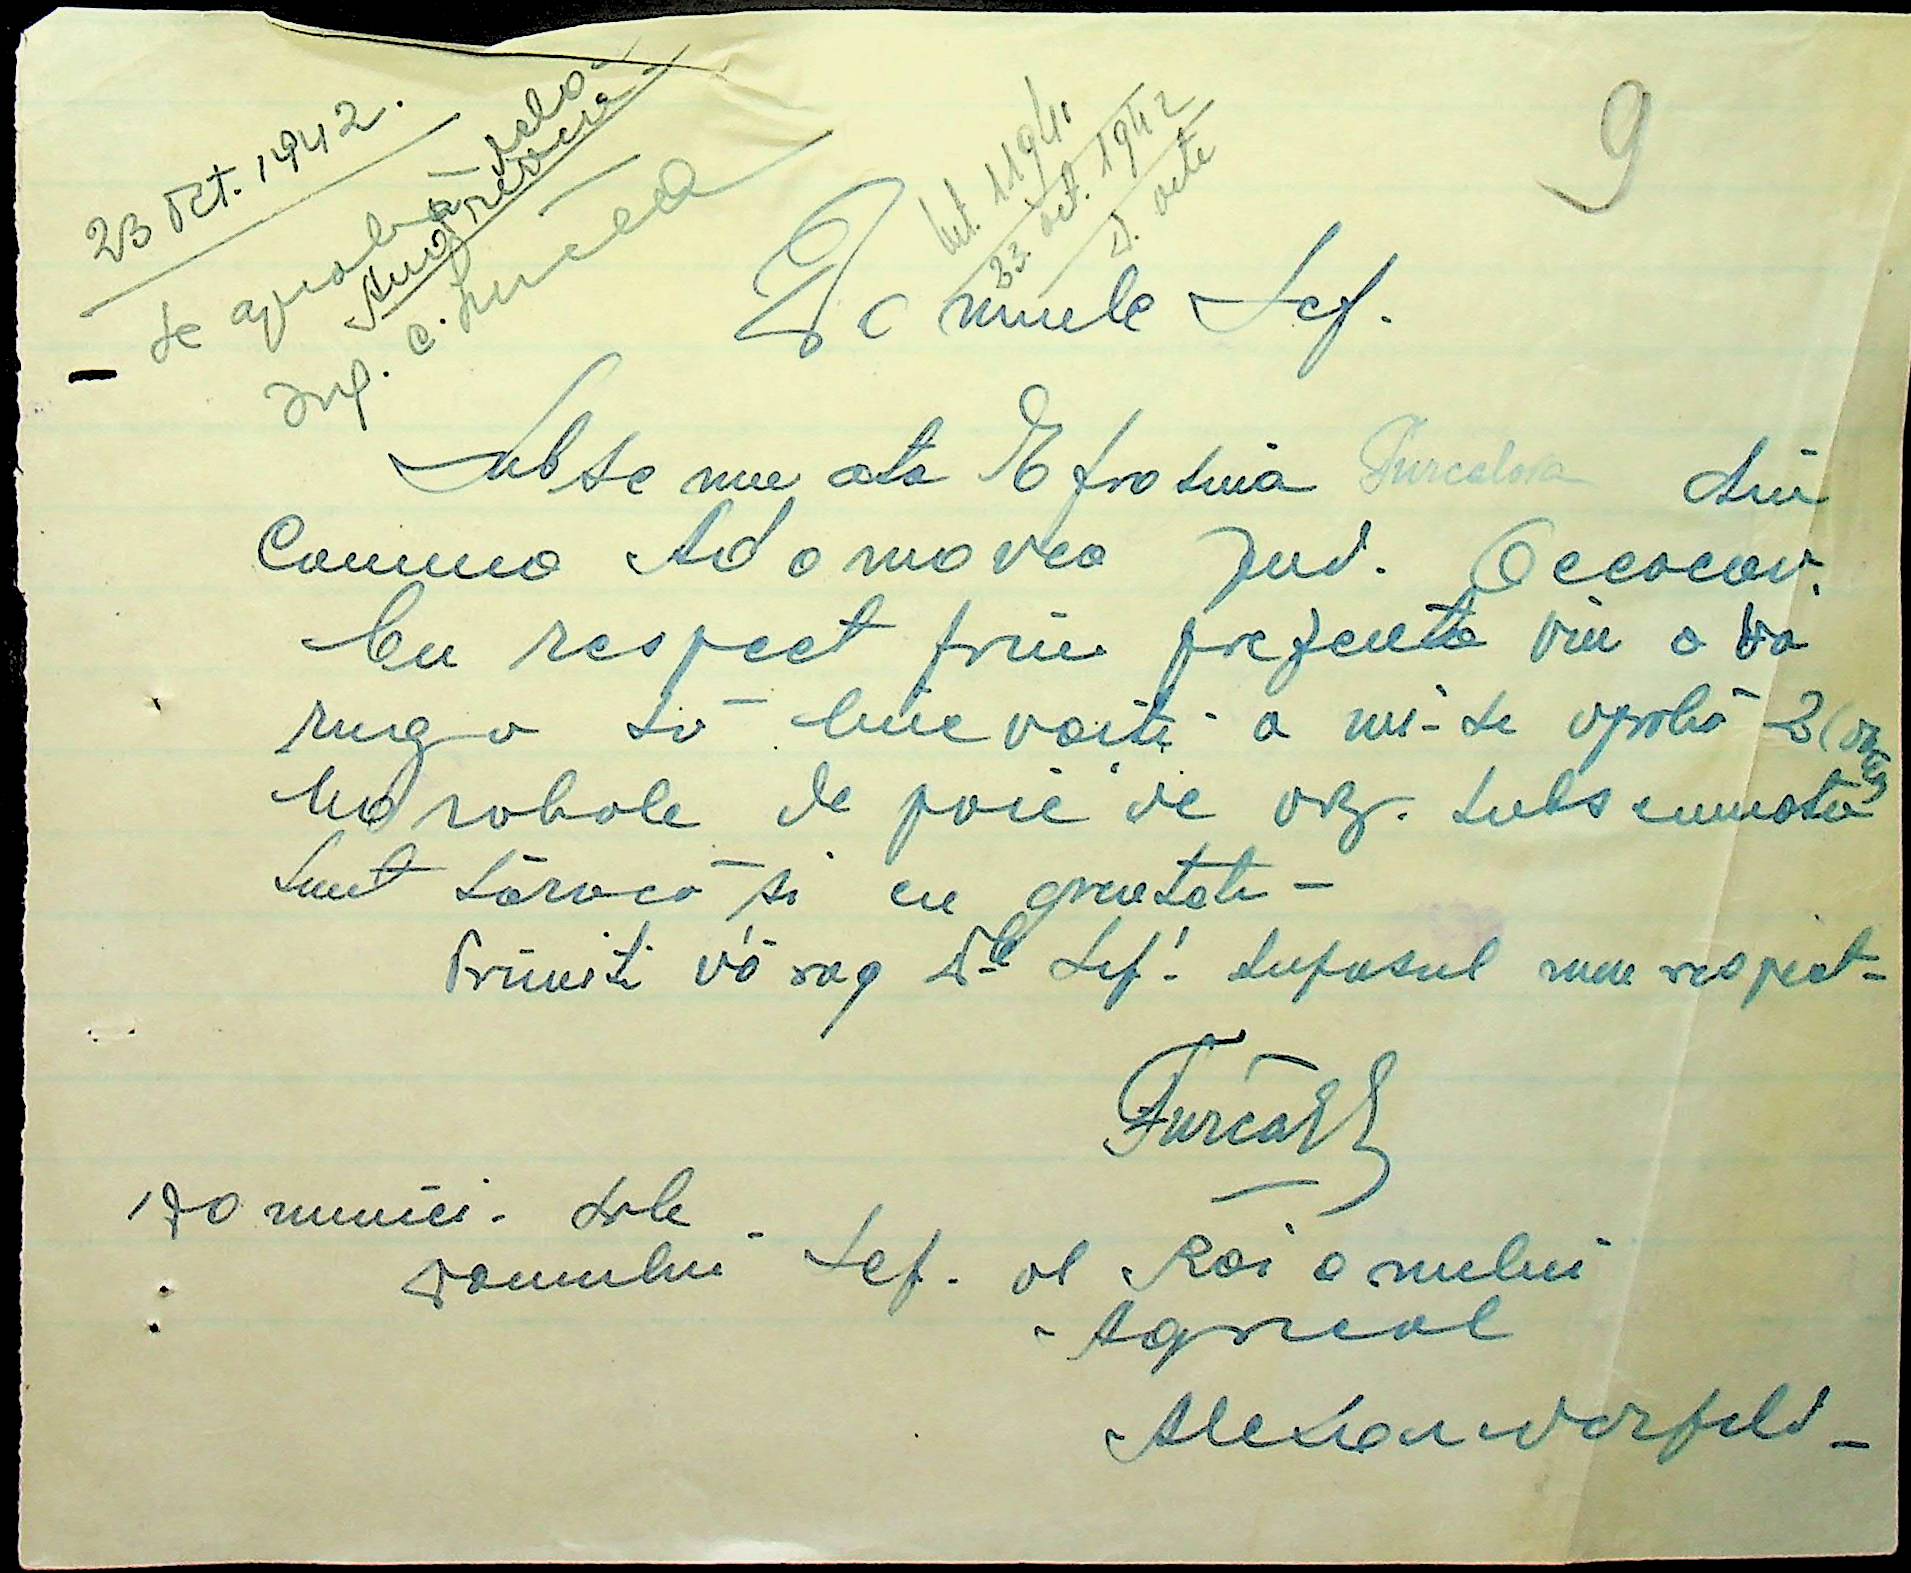 9
23 Oct. 1942.
Se aprobă
Ing. C.
23 oct. 1942
Domnule Șef.
Subsemnata Efrosinia Furcelova din
Comuna Adomovca Jud. Oceacov.
Cu respect prin prezenta vin a vă
ruga să bine voiți a mi-se aproba 2(
harabale de paie de orz. Subsemnata
sunt săracă și cu greutate -
Primiți vă rog Dle Șef! supusul meu respect -
Furca
Domniei Sale
Domnului Șef. al Raionului
Agricol
Alexandarfeld -